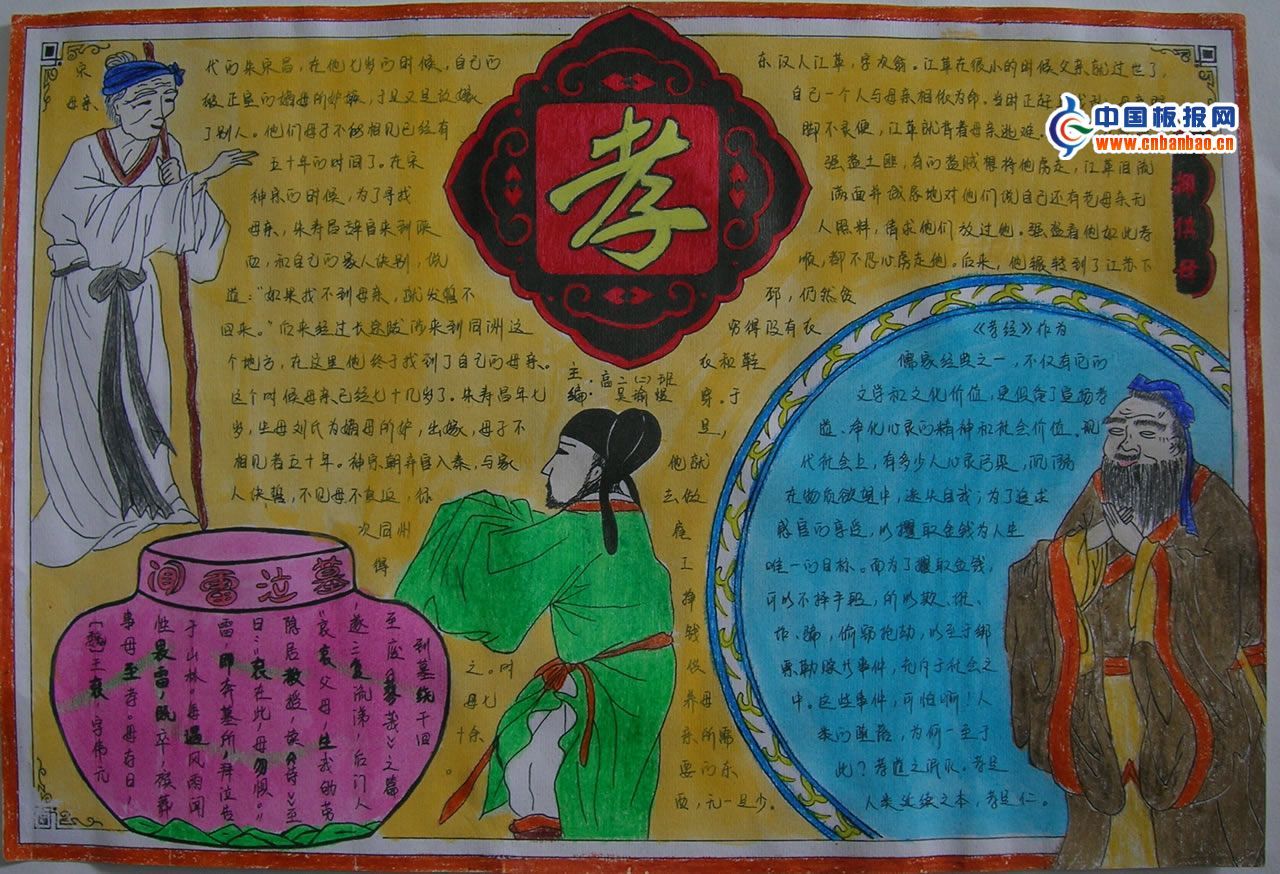 孝
中国板报网
www.cnbanbao.cn
宋
代的朱寿昌，在他七岁的时候，自己的
母亲
被正室的嫡母所嫉妒，于是又是改嫁
了别人。他们母子不能相见已经有
五十年的时间了。在宋
神宗的时候，为了寻找
母亲，朱寿昌辞官来到陕
西，和自己的家人诀别，说
道：“如果找不到母亲，就发誓不
回来。”后来经过长途跋涉来到同洲这
个地方，在这里他终于找到了自己的母亲。
这个时候母亲已经七十几岁了。朱寿昌年七
岁，生母刘氏为嫡母所妒，出嫁，母子不
相见者五十年。神宗朝弃官入秦，与家
人诀誓，不见母不复返，
次同州
得
之。时
母七
十余
。
主编：高二(二)班
东汉人江革，字次翁。江革在很小的时候父亲就过世了，
自己一个人与母亲相依为命。当时正好
脚不灵便，江革就背着母亲逃难。
强盗土匪，有的盗贼想将他虏走，江革泪流
满面并诚恳地对他们说自己还有老母亲无
人照料，请求他们放过他。强盗看他如此孝
顺，都不忍心虏走他。后来，他辗转到了江苏下
邳，仍然贫
穷得没有衣
衣和鞋
穿。于
是，
他就
去做
雇
工
挣
钱
供
养母
亲所需
要的东
西，无一是少。
佣供母
《孝经》作为
儒家经典之一，不仅有它的
文学和文化价值，更俱备了宣扬孝
道、净化心灵的精神和社会价值。现
代社会上，有多少人心灵污染，沉溺
在物质欲望中，迷失自我；为了追求
感官的享受，以攫取金钱为人生
唯一的目标。而为了攫取金钱，
可以不择手段，所以欺、诳、
诈、骗，偷窃抢劫，以至于绑
票勒赎等事件，充斥于社会之
中。这些事件，可怕啊！人
类的堕落，为何一至于
此？孝道之沉沦。孝是
人类延续之本，孝是仁。
闻雷泣墓
〔魏〕王裒，字伟元
事母至孝。母存日，
性畏雷，既卒，殡葬
于山林。每遇风雨闻
雷，即奔墓所，拜泣告
曰：“裒在此，母勿惧。”
隐居教授，读《诗》至
“哀哀父母，生我劬劳
”，遂三复流涕，后门人
至废《蓼莪》之篇
到墓绕千回